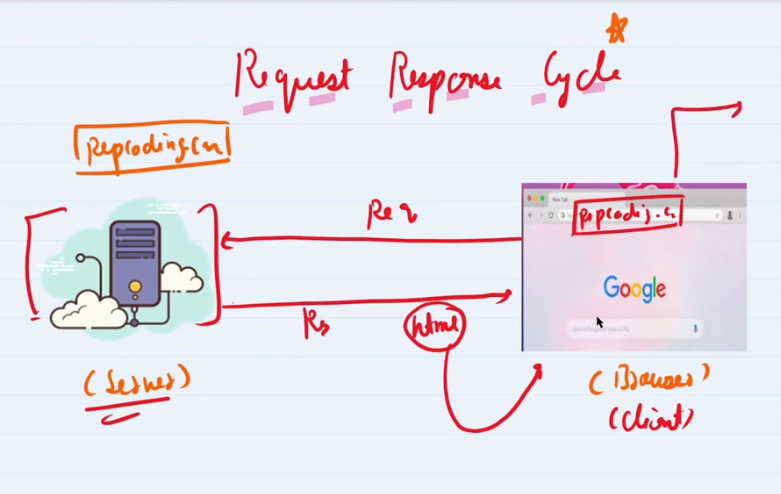 Request Response Cycle
pepcoding.com
New Tab
pepcoding.com
Req
Google
Search Google or type a URL
Res
html
(Server)
(Browser)
(Client)